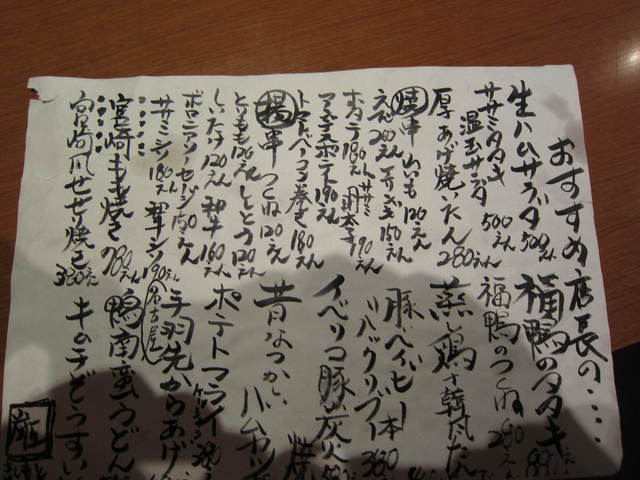 おすすめ店長の‥‥
生ハムサラダ 500えん
ササミタタキ温玉サラダ 500えん
厚あげ焼いたん 280えん
焼串 いも 120えん
えび 200えん ギンナン 150えん
ホタテ 180えん ササミ明太子 190えん
トマトベーコン巻き 180えん
揚串 つくね 120えん
とりもも 120えん ししとう 120えん
しいたけ 120えん 和牛 160えん
ボロニアソーセージ 150えん
ササミシソ 180えん 和牛シソ 190えん
宮崎もも焼き 780えん
宮崎風せせり焼き 380えん
福鴨のタタキ
福鴨のつくね 280えん
蒸し鶏サ韓風たん
豚ベイビーバックリブ 1本 380
イベリコ豚炭火
昔なつかし ハムカツ
ポテトフライ
名古屋 手羽先からあげ
鴨南蛮うどん
キムチぞうすい